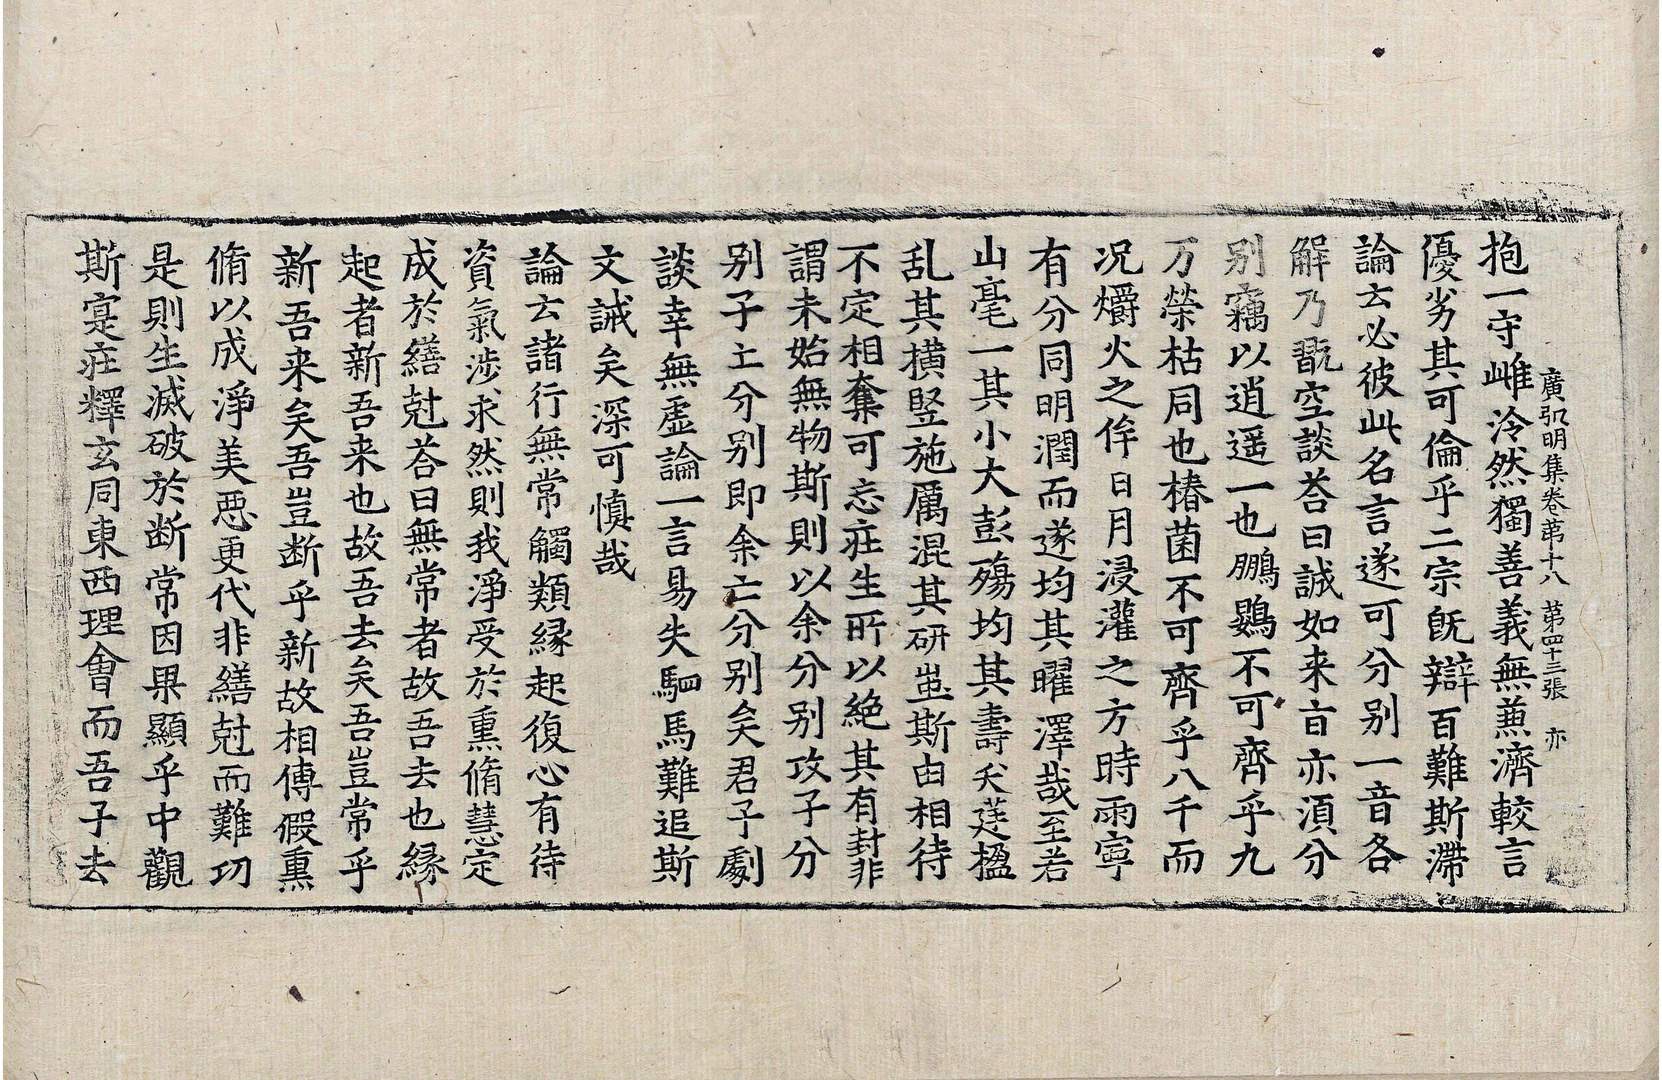 廣弘明集卷苐十八 第四十三張 亦
抱一守雌泠然獨善義無蒹濟較言
優劣其可倫乎二宗旣辯百難斯滞
論云必彼此名言遂可分别一音各
解乃翫空談荅曰誠如来㫖亦湏分
别竊以逍遥一也鵬鷃不可齊乎九
万榮枯同也椿菌不可齊乎八千而
况爝火之侔日月浸灌之方時雨寧
有分同明潤而遂均其曜澤哉至若
山毫一其小大彭殤均其壽夭莛楹
乱其横竪施厲混其研蚩斯由相待
不定相奪可忘莊生所以絶其有封非
謂未始無物斯則以余分别攻子分
别子亡分别即余亡分别矣君子劇
談幸無虚論一言易失駟馬難追斯
文誡矣深可慎哉
論云諸行無常觸類縁起復心有待
資氣涉求然則我淨受於熏脩慧定
成於繕尅荅曰無常者故吾去也縁
起者新吾来也故吾去矣吾豈常乎
新吾来矣吾豈断乎新故相傳假熏
脩以成淨美惡更代非繕尅而難功
是則生滅破於断常因果顯乎中觀
斯寔莊釋玄同東西理會而吾子去